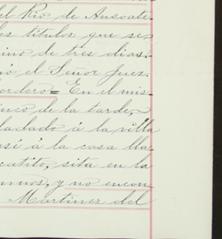 del Rio de Ansoate
les titular que se
ino de tres dias.
ó el Señor Juez
Cordero = En el mis
inco de la tarde,
ladado á la villa
sé á la casa lla
catito, sita en la
y no encon
Martinez del